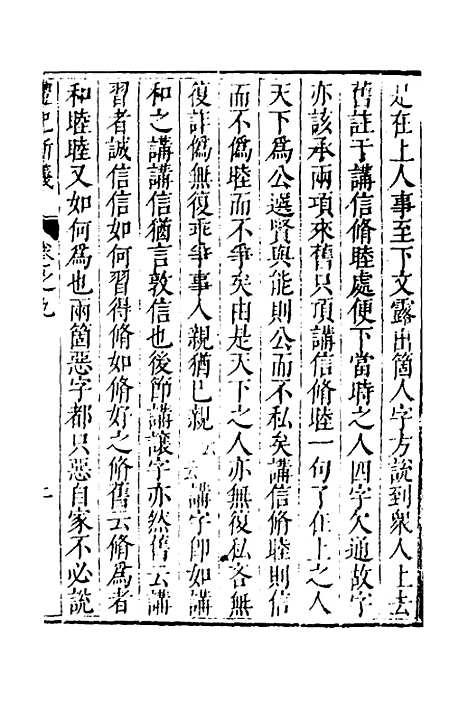 是在上人事至下文露出箇人字方說到衆人上去
舊註于講信脩睦處便下當時之人四字欠通故字
亦該承兩項來舊只頂講信脩睦一句了在上之人
天下爲公選賢與能則公而不私矣講信脩睦則信
而不僞睦而不爭矣由是天下之人亦無復私吝無
復詐僞無復乖爭事人親猶己親云云講字卽如講
和之講講信猶言敦信也後節講讓字亦然舊云講
習者誠信信如何習得脩如脩好之脩舊云脩爲者
和睦睦又如何爲也兩箇惡字都只惡自家不必說
禮記新義
卷之九